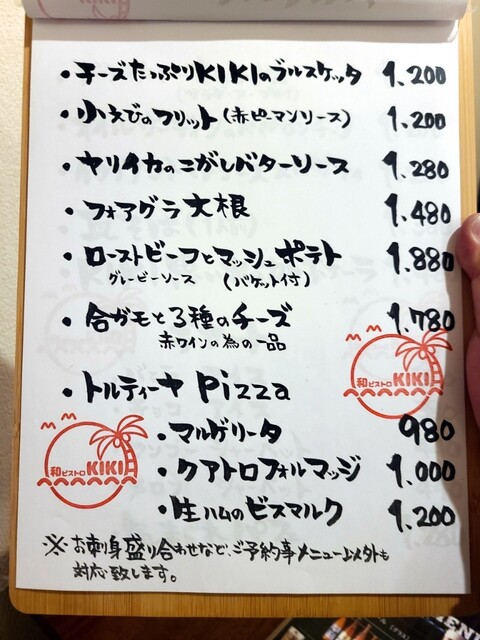 ・チーズたっぷりKIKIのブルスケッタ 1,200
・小えびのフリット(赤ピーマンソース) 1,200
・ヤリイカのこがしバターソース 1,280
・フォアグラ大根 1,480
・ローストビーフとマッシュポテト 1,880
グレービーソース (バケット付)
・合ガモと3種のチーズ 1,780
赤ワインの為の一品
和ビストロ KIKI
・トルティーヤ Pizza
・マルゲリータ 980
和ビストロ KIKI
・クアトロフォルマッジ 1,000
・生ハムのビスマルク 1,200
※お刺身盛り合わせなど、ご予約事メニュー以外も
対応致します。